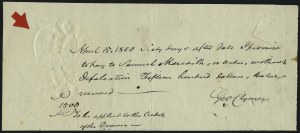 April 15, 1800 Sixty days after date I promise
to pay to Samuel Meredith, or order, without
Defalcation Fifteen hundred Dollars, value
received
Geo Clymer
1500
To be applied to the Credit
of the